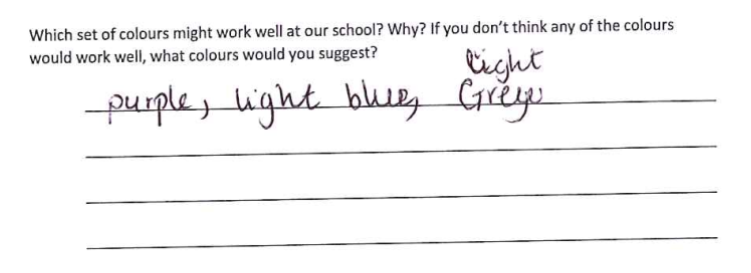 Which set of colours might work well at our school? Why? If you don't think any of the colours
would work well, what colours would you suggest?
light
purple, light blue, Greye